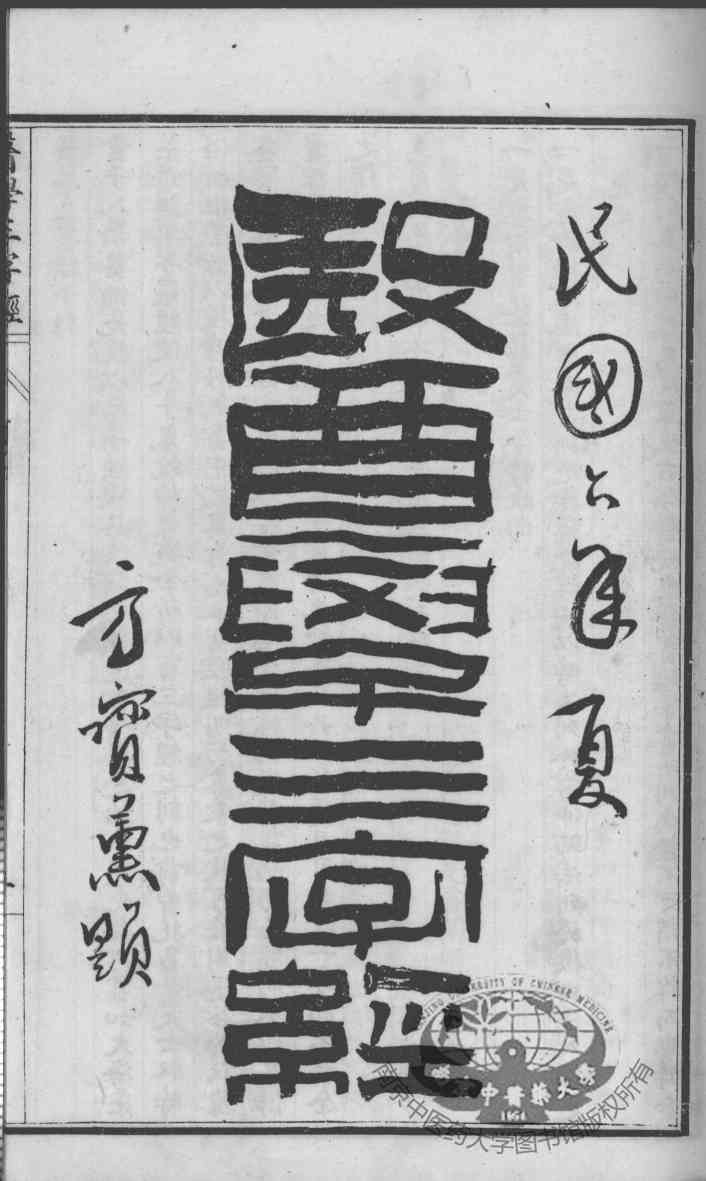 民國六年夏
醫學三字經
方寶薰題
醫學三字經
NANJING UNIVERSITY OF CHINESE MEDICINE
南京中医药大学图书馆版权所有